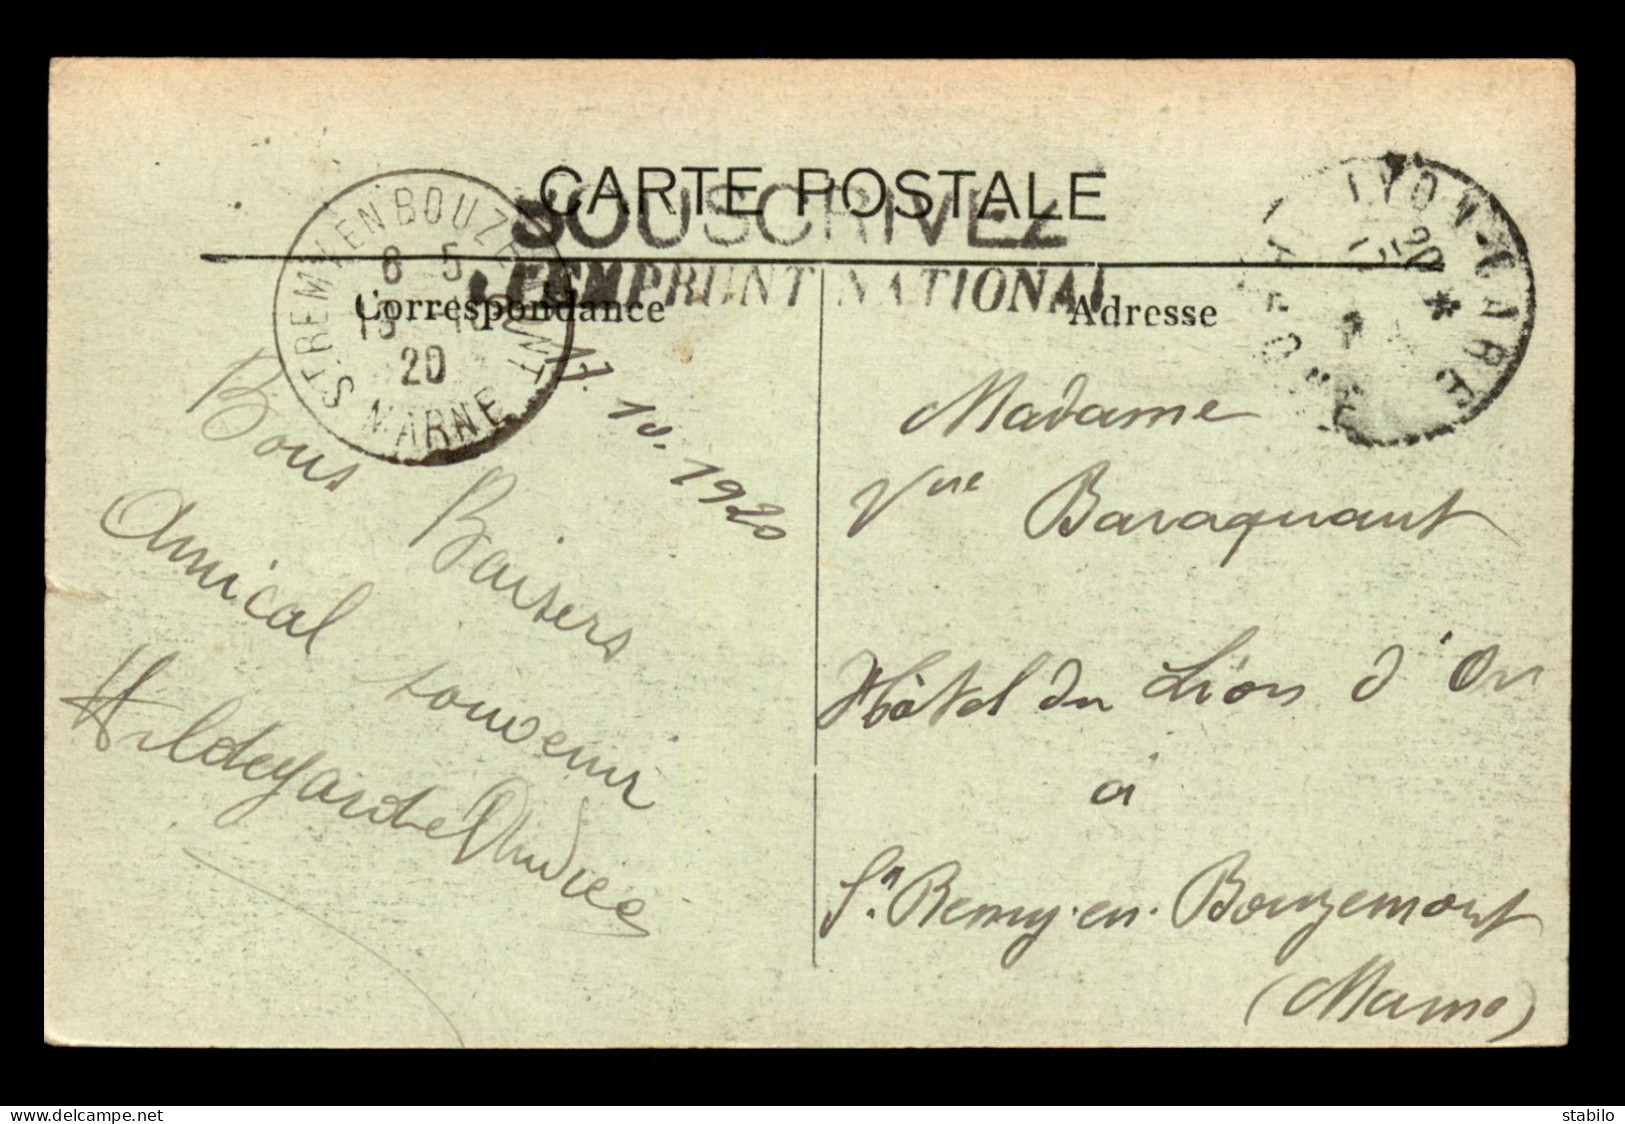 CARTE POSTALE
SOUSCRIVEZ
A L'EMPRUNT NATIONAL
Correspondance
Adresse
ST REMY EN BOUZEMONT
8 5
20
MARNE
LYON-GARE
RHONE
17. 10. 1920
Bons Baisers
Amical souvenir
Hildegarde Andrée
Madame
Vve Baraquant
Hôtel du Lion d'Or
à
St. Remy-en-Bouzemont
(Marne)
delcampe.net
stabilo